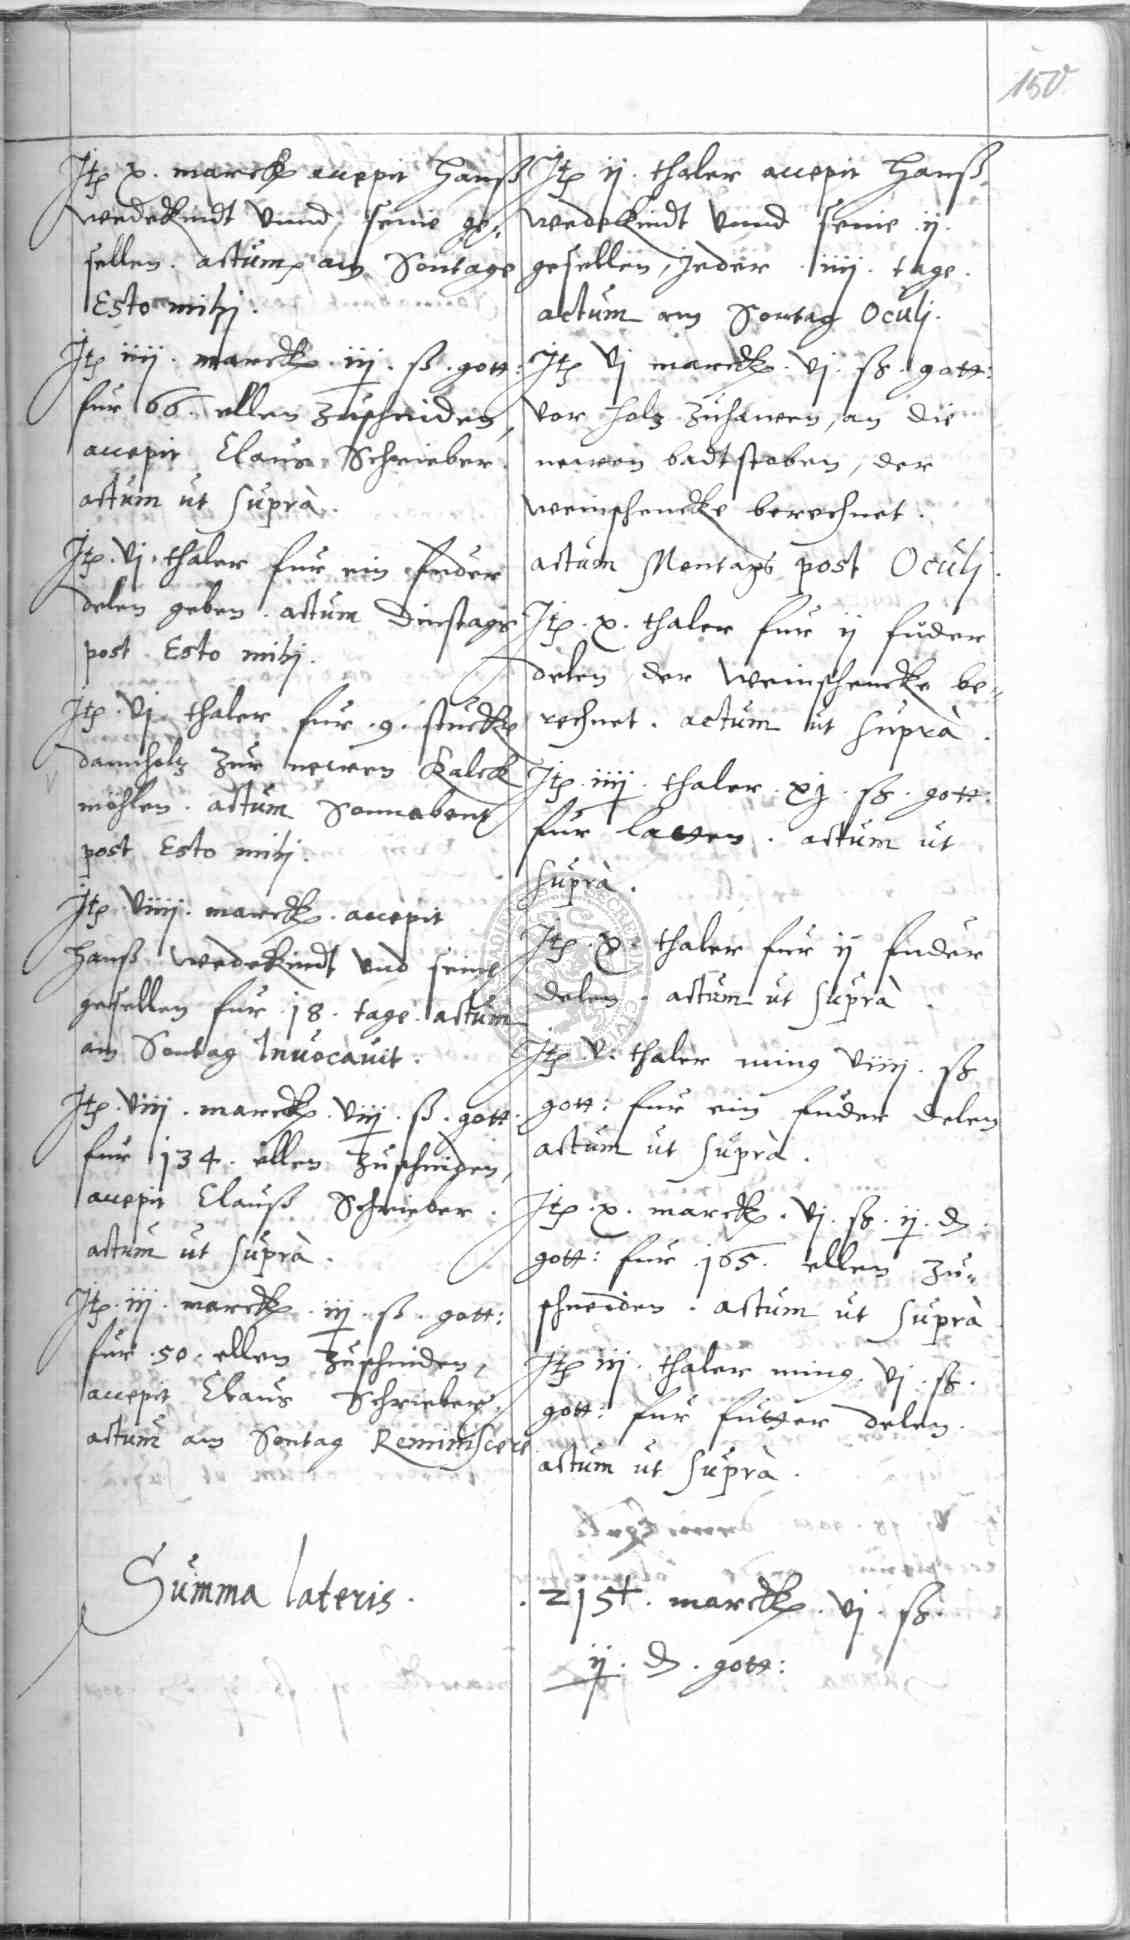 150
Itp x. marck accepit Hanß
wedekindt vnnd seine ge-
sellen. actum am Sontage
Esto mihj.
Itp iiij. marck. iij. ß. gott:
fur 66. ellen zuschniden,
accepit Claus Schrieber.
actum ut suprà.
Itp. vj. thaler fur ein fuder
delen geben. actum Dinstags
post Esto mihj.
Itp. vj. thaler fur .9. stucke
dannholtz zur newen Kalck
möhlen. actum Sonnabent
post Esto mihj.
Itp viiij. marck. accepit
Hanß wedekindt vnd seine
gesellen fur .18. tage. actum
am Sontag Inuocauit.
Itp. viij. marck. viij. ß. gott.
fur 134. ellen zuschniden,
accepit Clauß Schrieber.
actum ut suprà.
Itp. iij. marck. iij. ß. gott:
fur .50. ellen zuschniden,
accepit Claus Schrieber.
actum am Sontag Reminiscere
Itp ij. thaler accepit Hanß
wedekindt vnnd seine ij.
gesellen, Jeder .iiij. tage.
actum am Sontag Oculj.
Itp vj marck. vj. ß. gott:
vor holz zuhawen, an die
newen badtstoben, der
weinschencke berechnet.
actum Montags post Oculj.
Itp. x. thaler fur ij fuder
delen, der weinschencke be-
rechnet. actum ut suprà.
Itp. iiij. thaler. xj. ß. gott:
fur latten. actum ut
suprà.
Itp. x. thaler fur ij fuder
delen. actum ut suprà.
Itp. v. thaler ming viiij. ß
gott: fur ein fuder delen
actum ut suprà.
Itp. x. marck. vj. ß. ij. d.
gott: fur .165. ellen zu-
schneiden. actum ut suprà
Itp iij. thaler ming. vj. ß.
gott: fur futter delen.
actum ut suprà.
Summa lateris. 215+. marck. vj. ß.
ij. d. gott: